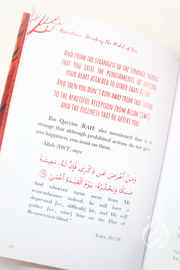 AND FROM THE STRANGEST OF THE STRANGE THINGS
THAT YOU TASTE THE PUNISHMENTS OF HAVING
YOUR HEART ATTACHED TO OTHER THAN ALLAH
AND THEN YOU DON'T RUN AWAY FROM THAT THING
TO THE BEAUTIFUL RECEPTION FROM ALLAH (SWT)
AND THE FULLNESS THAT HE OFFERS YOU
Ibn Qayyim (RAH) also mentioned that it is
strange that although prohibited actions do not give
you happiness, you insist on them.
Allah (SWT) says:
وَمَنْ أَعْرَضَ عَن ذِكْرِى فَإِنَّ لَهُۥ مَعِيشَةً
ضَنكًا وَنَحْشُرُهُۥ يَوْمَ ٱلْقِيَٰمَةِ أَعْمَىٰ
And whoever turns away from My
remembrance - indeed, he will have a
depressed [i.e., difficult] life, and We will
gather [i.e., raise] him on the Day of
Resurrection blind."
(Taha, 20:124)